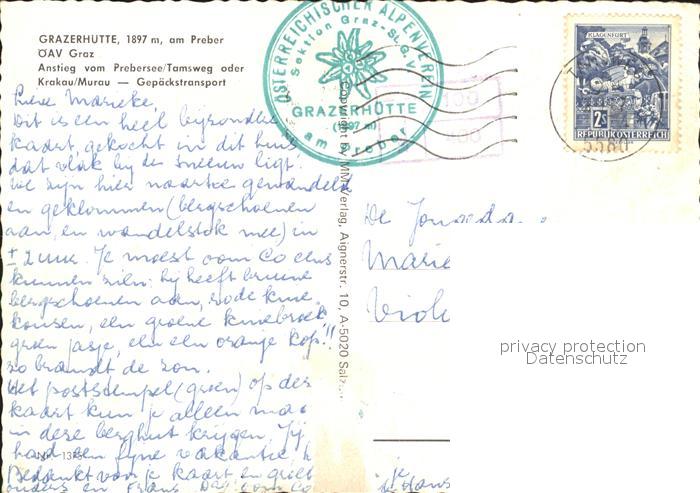 GRAZERHÜTTE, 1897 m, am Preber
ÖAV Graz
Anstieg vom Prebersee/Tamsweg oder
Krakau/Murau — Gepäckstransport
ÖSTERREICHISCHER ALPENVEREIN
Sektion Graz-St.G.V.
GRAZERHÜTTE
(1897 m)
am Preber
KLAGENFURT
2S
REPUBLIK ÖSTERREICH
5580
Lieve Marieke,
Dit is een heel bijzondere
kaart, gekocht in dit huis
dat vlak bij de sneeuw ligt.
We zijn hier naartoe gewandeld
en geklommen (bergschoenen
aan, en wandelstok mee) in
± 2 uur. Je moest oom Co eens
kunnen zien: hij heeft bruine
bergschoenen aan, rode knie
kousen, een groene kniebroek
groen jasje, en een orange kop!!
zo brandt de zon.
Het poststempel (groen) op deze
kaart kun je alleen maar
in deze berghut krijgen. Jij
had een fijne vakantie, h
Bedankt voor je kaart en groet
ouders en Frans
Copyright by MM-Verlag, Aignerstr. 10, A-5020 Salz
De
Marie
Viol
privacy protection
Datenschutz